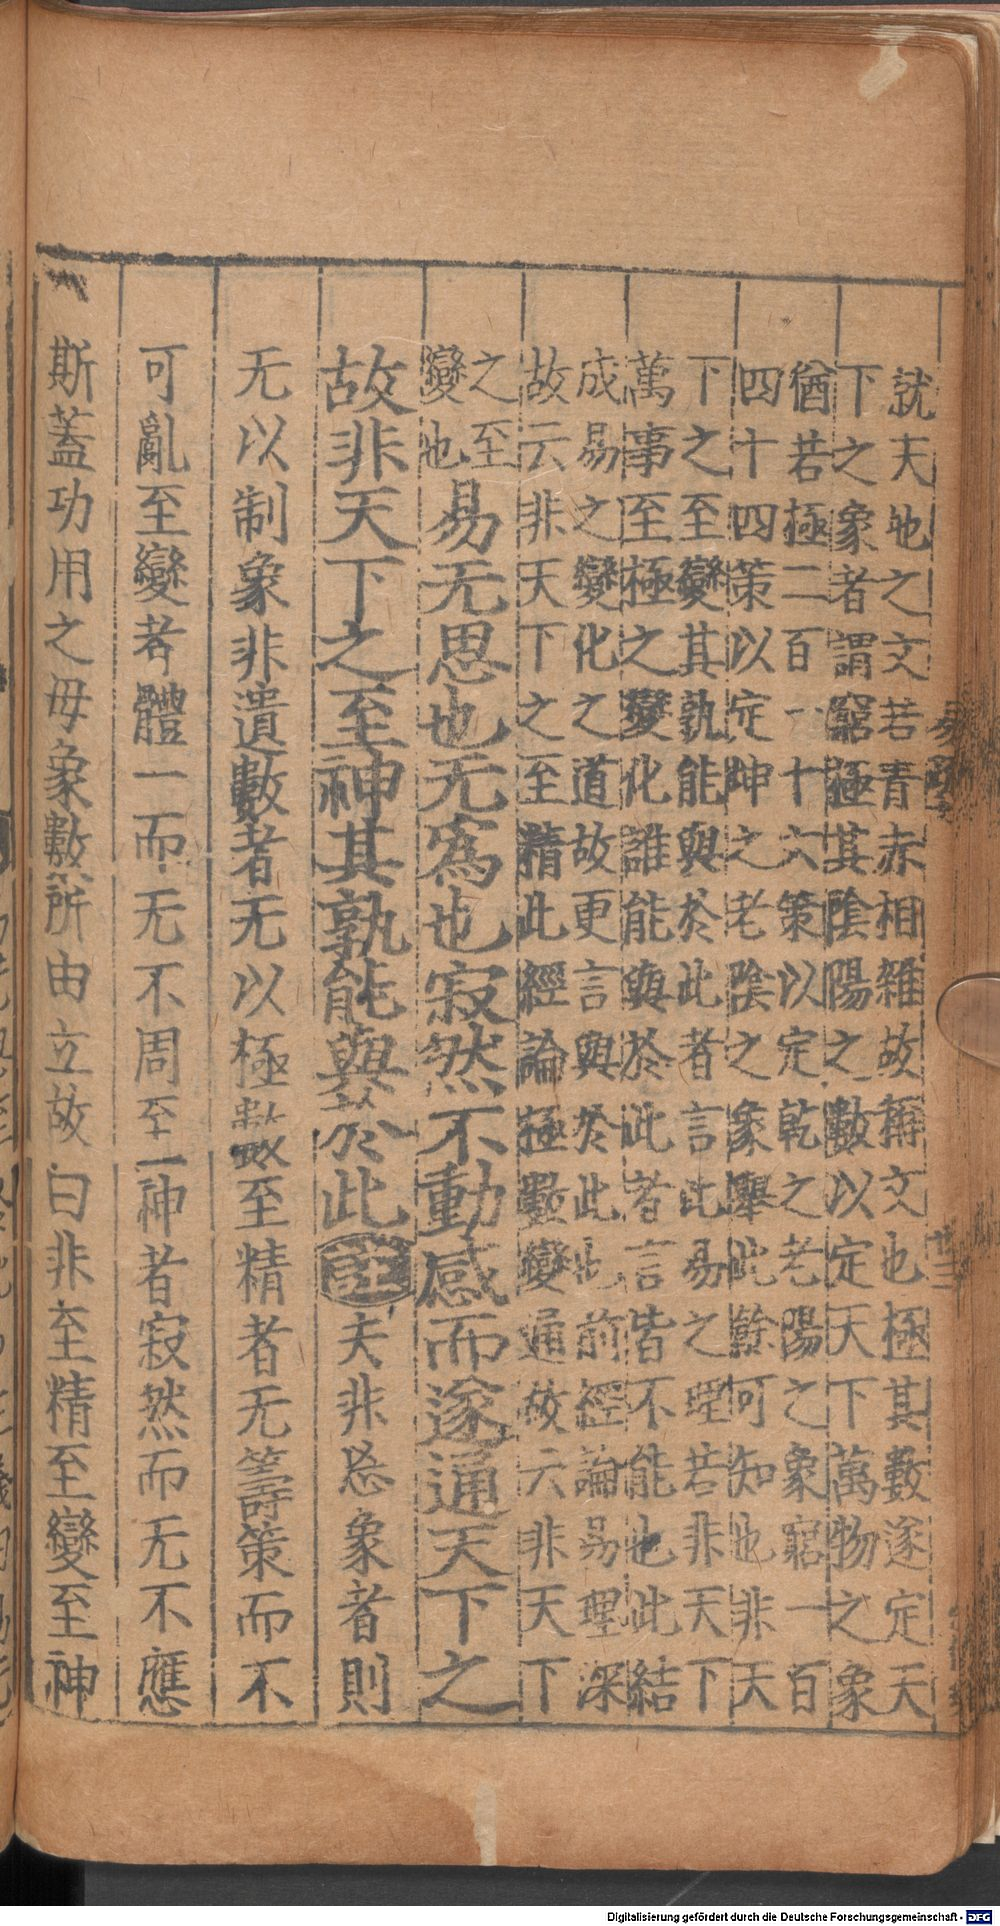 就天地之文若青赤相雜故稱文也極其數遂定天
下之象者謂窮極其陰陽之數以定天下萬物之象
猶若極二百一十六策以定乾之老陽之象窮一百
四十四策以定坤之老陰之象舉此餘可知也非天
下之至變其孰能與於此者言此易之理若非天下
萬事至極之變化誰能與於此者言皆不能也此結
成易之變化之道故更言與於此也前經論易理深
故云非天下之至精此經論極數變通故云非天下
之至
變也
易无思也无爲也寂然不動感而遂通天下之
故非天下之至神其孰能與於此 註 夫非忘象者則
无以制象非遺數者无以極數至精者无籌策而不
可亂至變者體一而无不周至神者寂然而无不應
斯蓋功用之母象數所由立故曰非至精至變至神
Digitalisierung gefördert durch die Deutsche Forschungsgemeinschaft - DFG